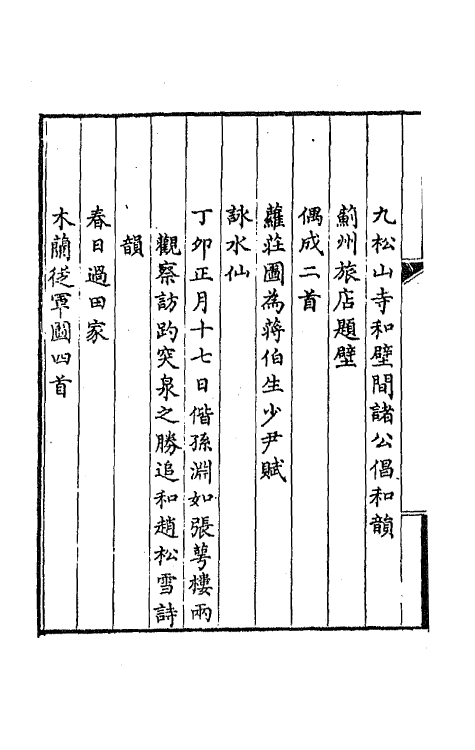 九松山寺和壁間諸公倡和韻
薊州旅店題壁
偶成二首
蘿莊圖為蔣伯生少尹賦
詠水仙
丁卯正月十七日偕孫淵如張萼樓兩
觀察訪趵突泉之勝追和趙松雪詩
韻
春日過田家
木蘭從軍圖四首